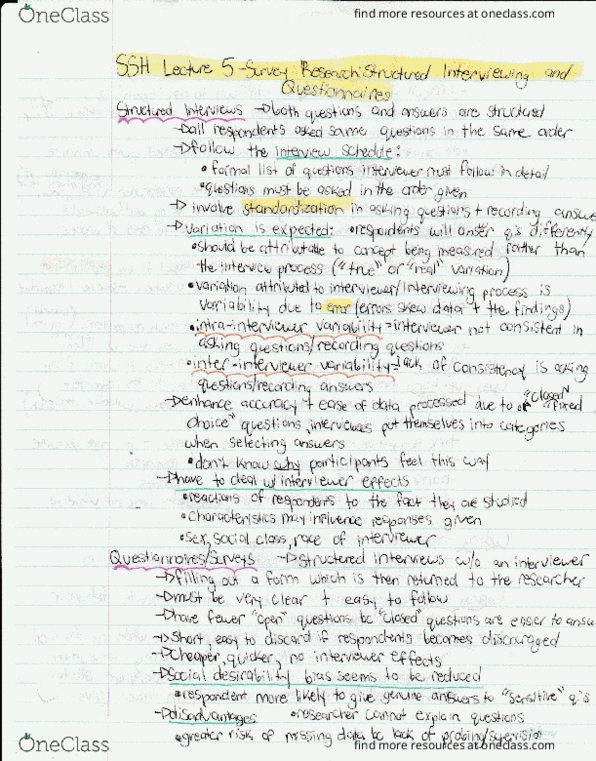 OneClass
find more resources at oneclass.com
SSH Lecture 5 - Survey Research: Structured Interviewing and
Questionnaires
Structured Interviews → both questions and answers are structured
→ all respondents asked same questions in the same order
→ follow the interview schedule:
• formal list of questions interviewer must follow in detail
• questions must be asked in the order given
→ involve standardization in asking questions + recording answe
→ Variation is expected: • respondents will answer q's differently
• should be attributable to concept being measured rather than
the interview process ("true" or "real" variation)
• variation attributed to interviewer/interviewing process is
variability due to error (errors skew data + the findings)
• intra-interviewer variability = interviewer not consistent in
asking questions/recording questions
• inter-interviewer variability = lack of consistency is asking
questions/recording answers
→ enhance accuracy + ease of data processed due to "closed" or "fixed
choice" questions, interviewes put themselves into categories
when selecting answers
• don't know why participants feel this way
→ have to deal w/ interviewer effects
• reactions of respondents to the fact they are studied
• characteristics may influence responses given
• sex, social class, race of interviewer
Questionnaires/Surveys → structured interviews w/o an interviewer
→ filling out a form which is then returned to the researcher
→ must be very clear + easy to follow
→ have fewer "open" questions bc "closed" questions are easier to answ
→ short, easy to discard if respondents becomes discouraged
→ cheaper, quicker, no interviewer effects
→ Social desirability bias seems to be reduced
• respondent more likely to give genuine answers to "sensitive" q's
→ disadvantages • researcher cannot explain questions
• greater risk of missing data bc lack of probing/supervision
OneClass
find more resources at oneclass.com